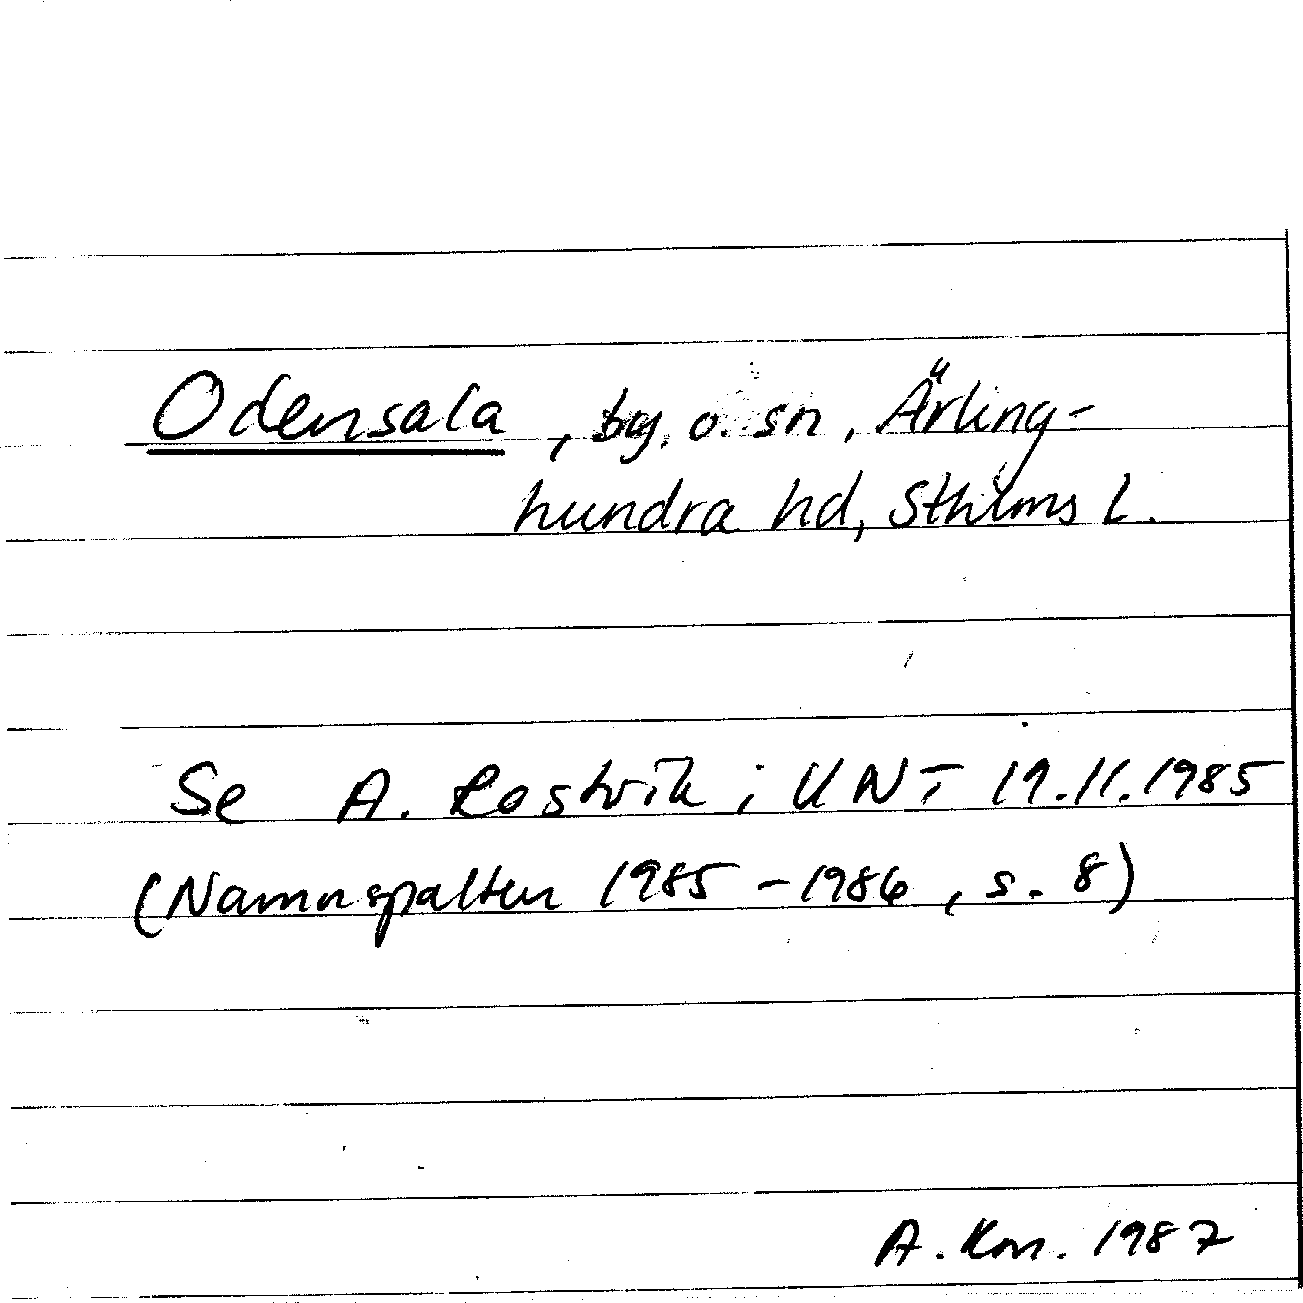 Odensala, by. o. sn, Ärling-
hundra hd, Sthlms l.
Se A. Rostvik i UNT 19.11.1985
(Namnspalten 1985-1986, s. 8)
A. Kon. 1987